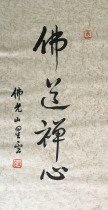 佛道禪心
佛光山星雲